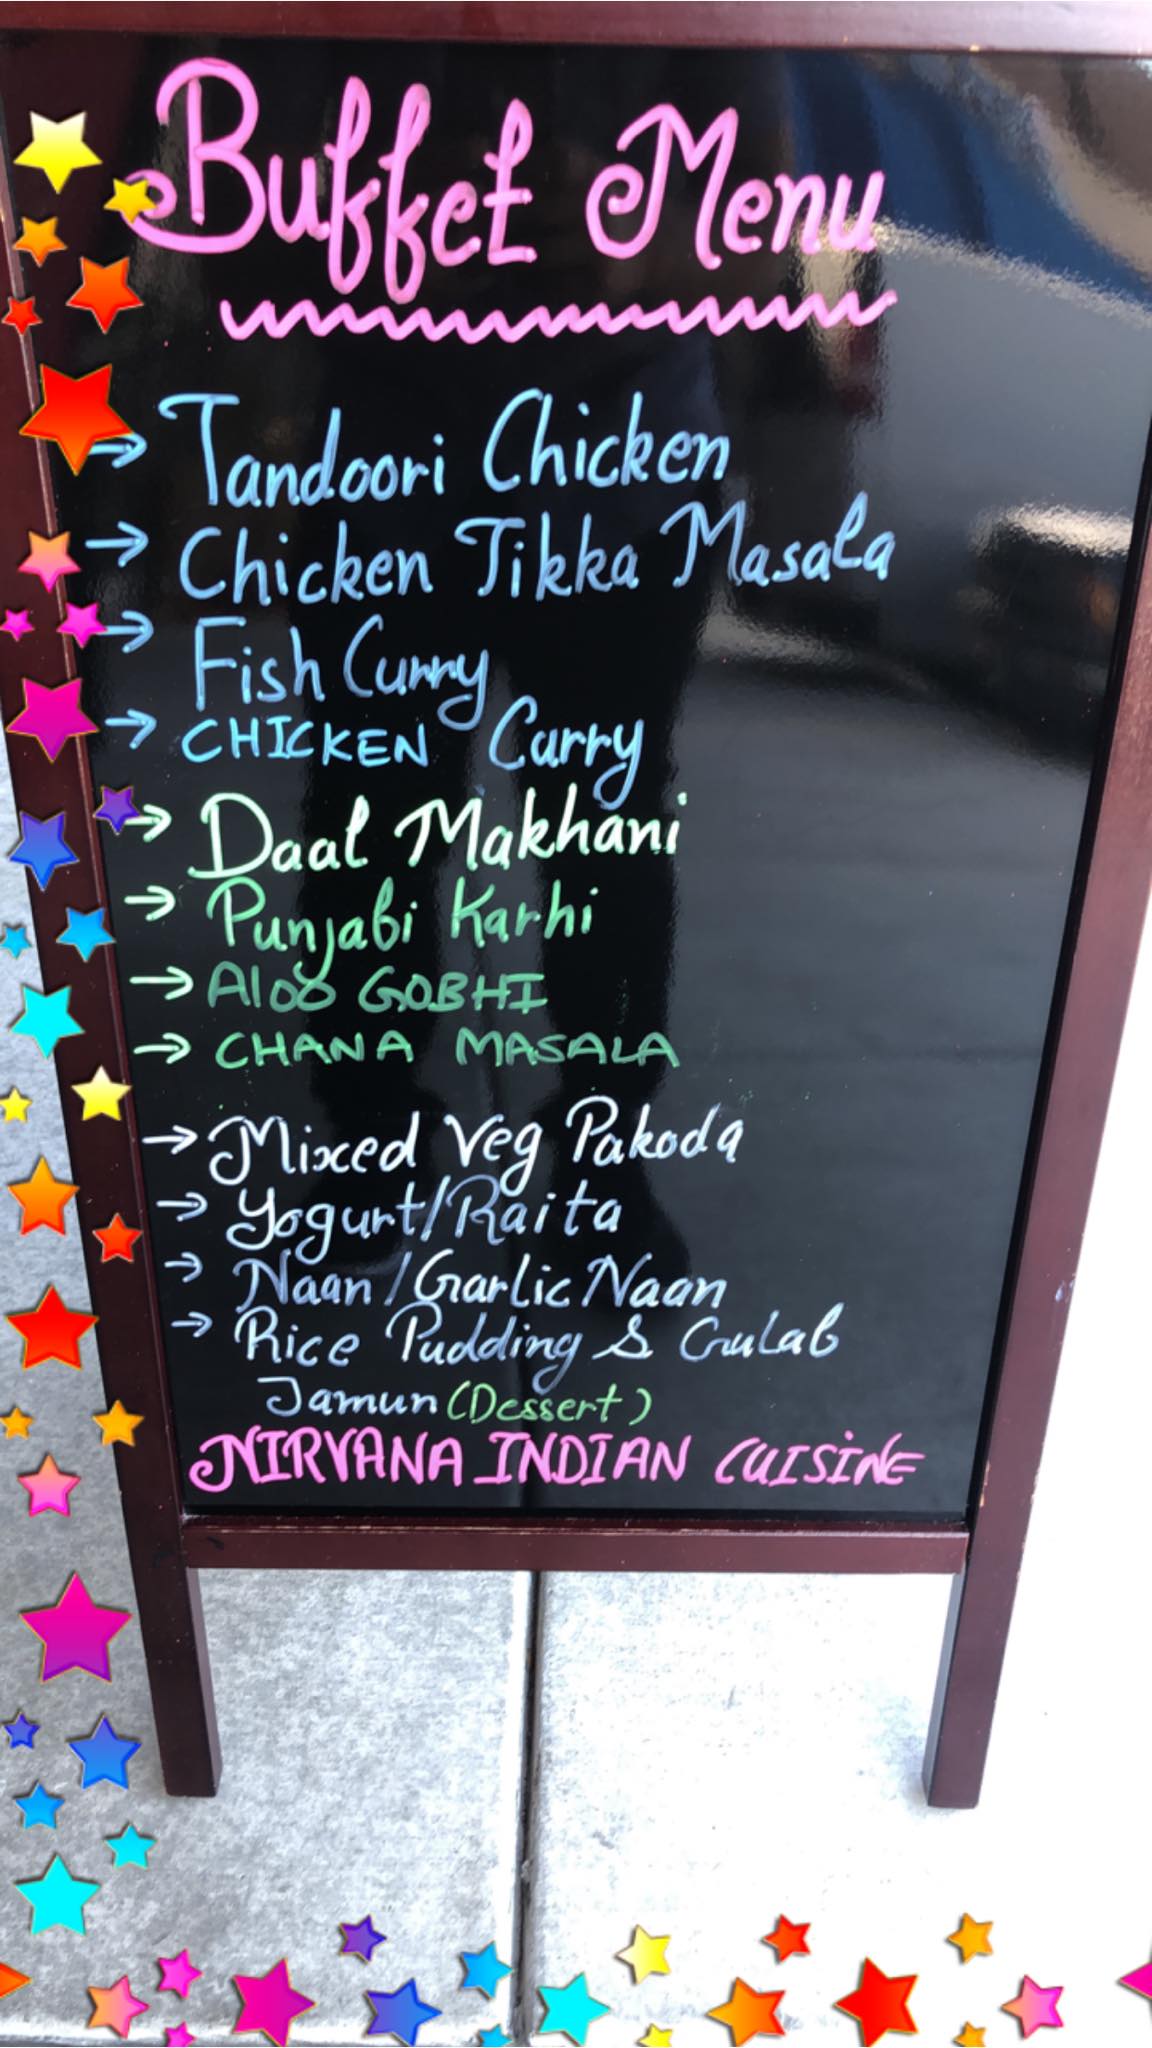 Buffet Menu
→ Tandoori Chicken
→ Chicken Tikka Masala
→ Fish Curry
→ CHICKEN Curry
→ Daal Makhani
→ Punjabi Karhi
→ Aloo GOBHI
→ CHANA MASALA
→ Mixed Veg Pakoda
→ Yogurt/Raita
→ Naan/Garlic Naan
→ Rice Pudding & Gulab
Jamun (Dessert)
NIRVANA INDIAN CUISINE